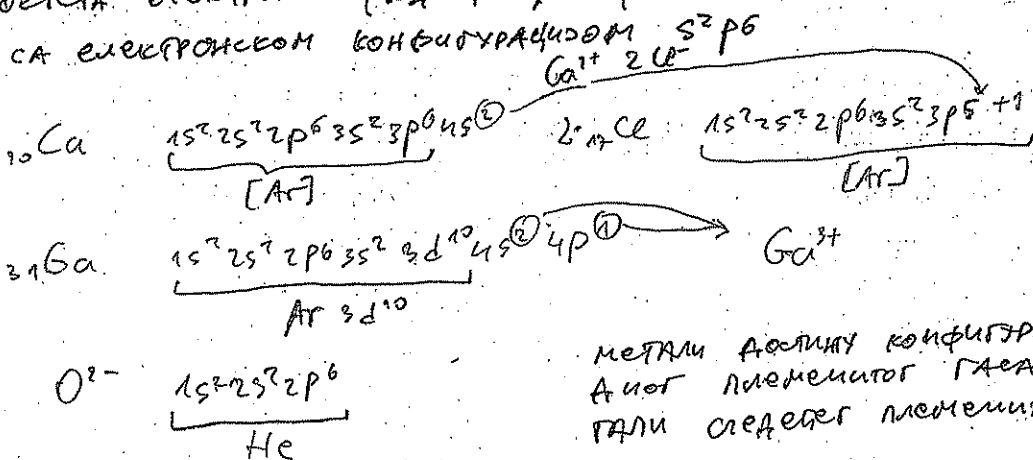 СА ЕЛЕКТРОНСКОМ КОНФИГУРАЦИЈОМ s²p6
Ca²⁺ 2Cl⁻
₂₀Ca 1s²2s²2p⁶3s²3p⁶4s② 2·₁₇Cl 1s²2s²2p⁶3s²3p5 +1
[Ar] [Ar]
₃₁Ga 1s²2s²2p6 3s² 3d¹⁰4s② 4p① Ga³⁺
Ar 3d¹⁰
O²⁻ 1s²2s²2p⁶
He
МЕТАЛИ ДОСТИЖУ КОНФИГУР
ДНОГ ПЛЕМЕНИТОГ ГАСА
ТАЛИ СЛЕДЕЋЕГ ПЛЕМЕНИ